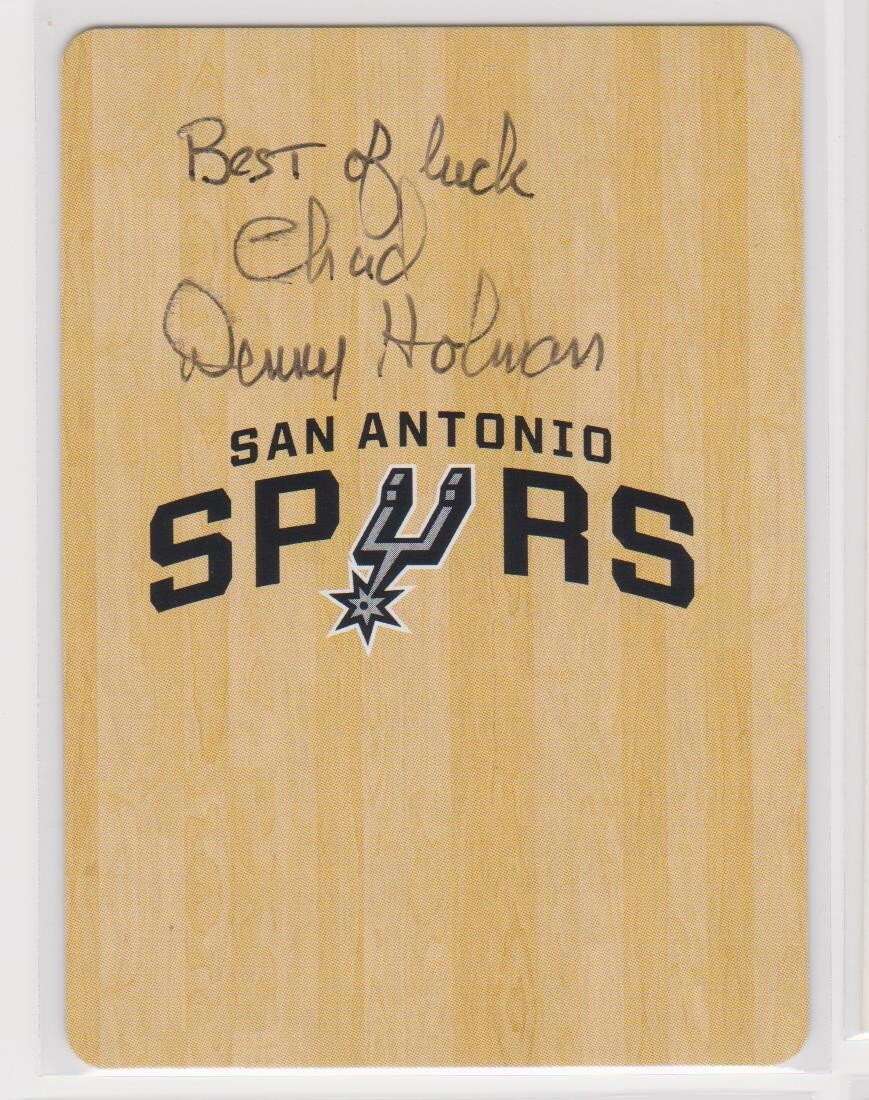 Best of luck
Chad
Denny Holman
SAN ANTONIO
SPURS